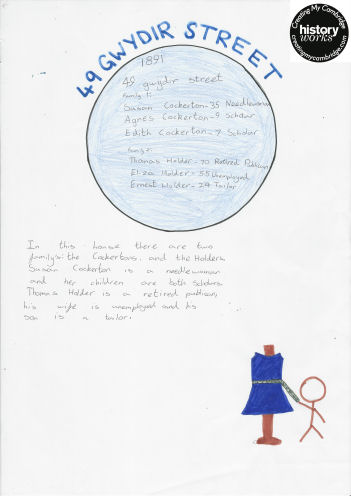 Creating My Cambridge
history
works
creatingmycambridge.com
49 GWYDIR STREET
1891
49 gwydir street
Family 1:
Susan Cockerton - 35 Needlewoman
Agnes Cockerton - 9 Scholar
Edith Cockerton - 7 Scholar
Family 2:
Thomas Holder - 70 Retired
Eliza Holder - 55 Unemployed
Ernest Holder - 24 Tailor
In this house there are two
familys: the Cockertons, and the Holders.
Susan Cockerton is a needlewoman
and her children are both scholars.
Thomas Holder is a retired
his wife is unemployed and his
son is a tailor.